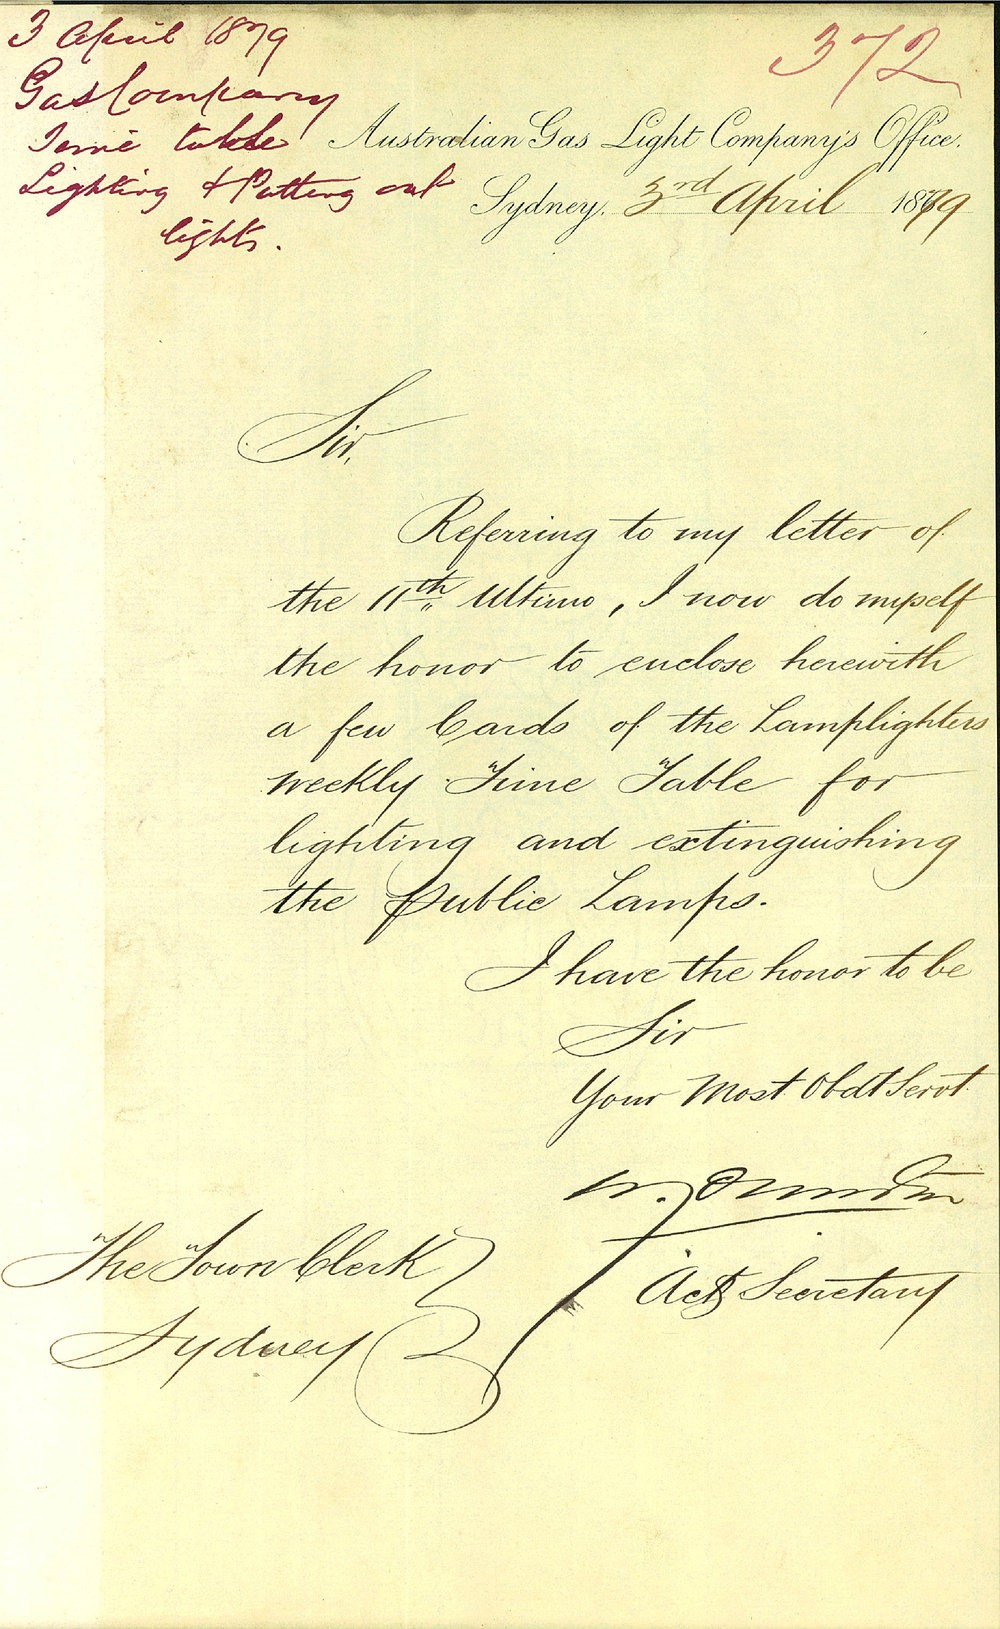 3 April 1879
Gas Company
Time table
Lighting & Putting out
lights.
372
Australian Gas Light Company's Office.
Sydney, 3rd April 1879
Sir,
Referring to my letter of
the 11th Ultimo, I now do myself
the honor to enclose herewith
a few Cards of the Lamplighters
Weekly Time Table for
lighting and extinguishing
the Public Lamps.
I have the honor to be
Sir
Your Most Obdt Servt
W.
Actg Secretary
The Town Clerk
Sydney